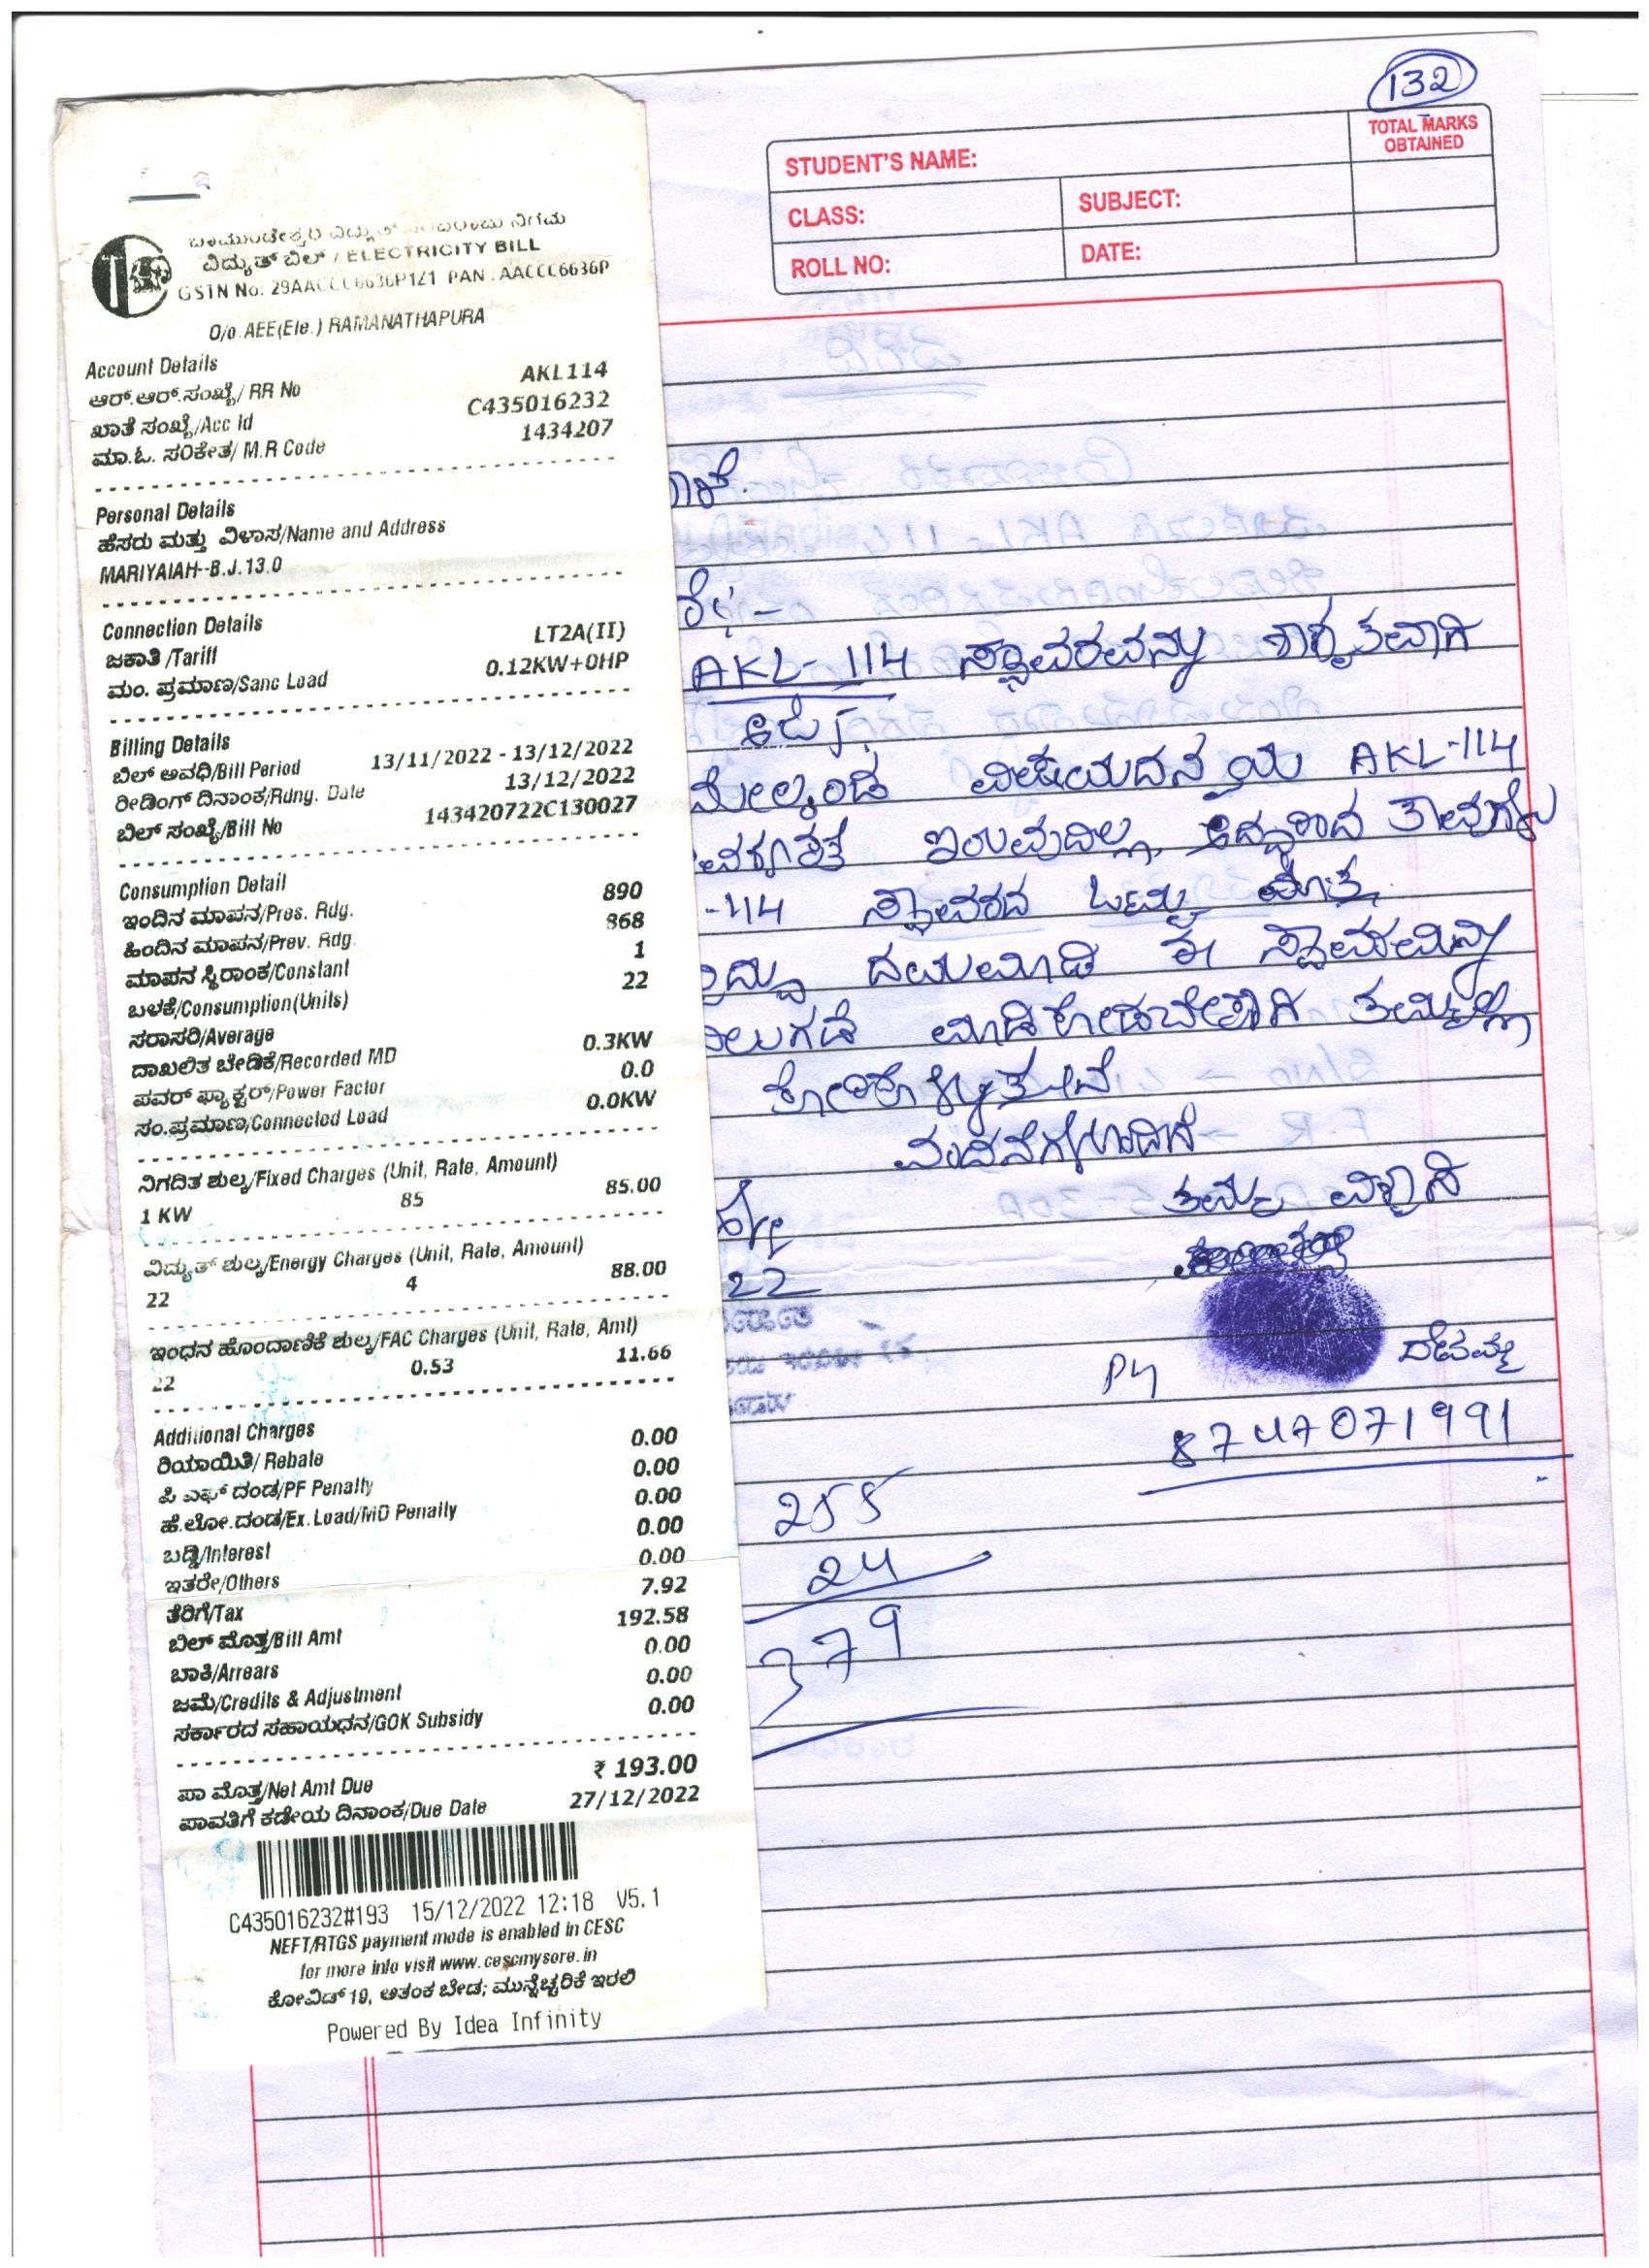 132
STUDENT'S NAME:
TOTAL MARKS OBTAINED
CLASS:
SUBJECT:
ROLL NO:
DATE:
ವಿದ್ಯುತ್ ಬಿಲ್ / ELECTRICITY BILL
GSTN No: 29AACCC6636P1Z1 PAN : AACCC6636P
O/o AEE(Ele.) RAMANATHAPURA
Account Details
ಆರ್.ಆರ್.ಸಂಖ್ಯೆ/ RR No AKL114
ಖಾತೆ ಸಂಖ್ಯೆ/Acc Id C435016232
ಮಾ.ಓ. ಸಂಕೇತ/ M.R Code 1434207
Personal Details
ಹೆಸರು ಮತ್ತು ವಿಳಾಸ/Name and Address
MARIYAIAH--B.J.13.0
Connection Details
ಜಕಾತಿ /Tariff LT2A(II)
ಮಂ. ಪ್ರಮಾಣ/Sanc Load 0.12KW+0HP
Billing Details
ಬಿಲ್ ಅವಧಿ/Bill Period 13/11/2022 - 13/12/2022
ರೀಡಿಂಗ್ ದಿನಾಂಕ/Rdng. Date 13/12/2022
ಬಿಲ್ ಸಂಖ್ಯೆ/Bill No 143420722C130027
Consumption Detail
ಇಂದಿನ ಮಾಪನ/Pres. Rdg. 890
ಹಿಂದಿನ ಮಾಪನ/Prev. Rdg. 868
ಮಾಪನ ಸ್ಥಿರಾಂಕ/Constant 1
ಬಳಕೆ/Consumption(Units) 22
ಸರಾಸರಿ/Average
ದಾಖಲಿತ ಬೇಡಿಕೆ/Recorded MD 0.3KW
ಪವರ್ ಫ್ಯಾಕ್ಟರ್/Power Factor 0.0
ಸಂ.ಪ್ರಮಾಣ/Connected Load 0.0KW
ನಿಗದಿತ ಶುಲ್ಕ/Fixed Charges (Unit, Rate, Amount)
1 KW 85 85.00
ವಿದ್ಯುತ್ ಶುಲ್ಕ/Energy Charges (Unit, Rate, Amount)
22 4 88.00
ಇಂಧನ ಹೊಂದಾಣಿಕೆ ಶುಲ್ಕ/FAC Charges (Unit, Rate, Amt)
22 0.53 11.66
Additional Charges
ರಿಯಾಯಿತಿ/ Rebate 0.00
ಪಿ ಎಫ್ ದಂಡ/PF Penalty 0.00
ಹೆ.ಲೋ.ದಂಡ/Ex.Load/MD Penally 0.00
ಬಡ್ಡಿ/Interest 0.00
ಇತರೇ/Others 0.00
ತೆರಿಗೆ/Tax 7.92
ಬಿಲ್ ಮೊತ್ತ/Bill Amt 192.58
ಬಾಕಿ/Arrears 0.00
ಜಮೆ/Credits & Adjustment 0.00
ಸರ್ಕಾರದ ಸಹಾಯಧನ/GOK Subsidy 0.00
ಪಾ ಮೊತ್ತ/Net Amt Due ₹ 193.00
ಪಾವತಿಗೆ ಕಡೇಯ ದಿನಾಂಕ/Due Date 27/12/2022
C435016232#193 15/12/2022 12:18 V5.1
NEFT/RTGS payment mode is enabled in CESC
for more info visit www.cescmysore.in
ಕೋವಿಡ್ 19, ಆತಂಕ ಬೇಡ; ಮುನ್ನೆಚ್ಚರಿಕೆ ಇರಲಿ
Powered By Idea Infinity
AKL-114 ಸ್ಥಾವರವನ್ನು ಶಾಶ್ವತವಾಗಿ
ಮೇಲ್ಕಂಡ ವಿಷಯದನ್ವಯ AKL-114
ಇರುವುದಿಲ್ಲ, ಆದ್ದರಿಂದ ತಾವುಗಳು
-114 ಸ್ಥಾವರದ ಒಟ್ಟು ಮೊತ್ತ
ದಯಮಾಡಿ ಈ
ಮಾಡಿಕೊಡಬೇಕಾಗಿ ತಮ್ಮಲ್ಲಿ
ಕೇಳಿಕೊಳ್ಳುತ್ತೇನೆ
ವಂದನೆಗಳೊಂದಿಗೆ
ತಮ್ಮ ವಿಶ್ವಾಸಿ
22
ದೇವಮ್ಮ
8747071991
255
24
379